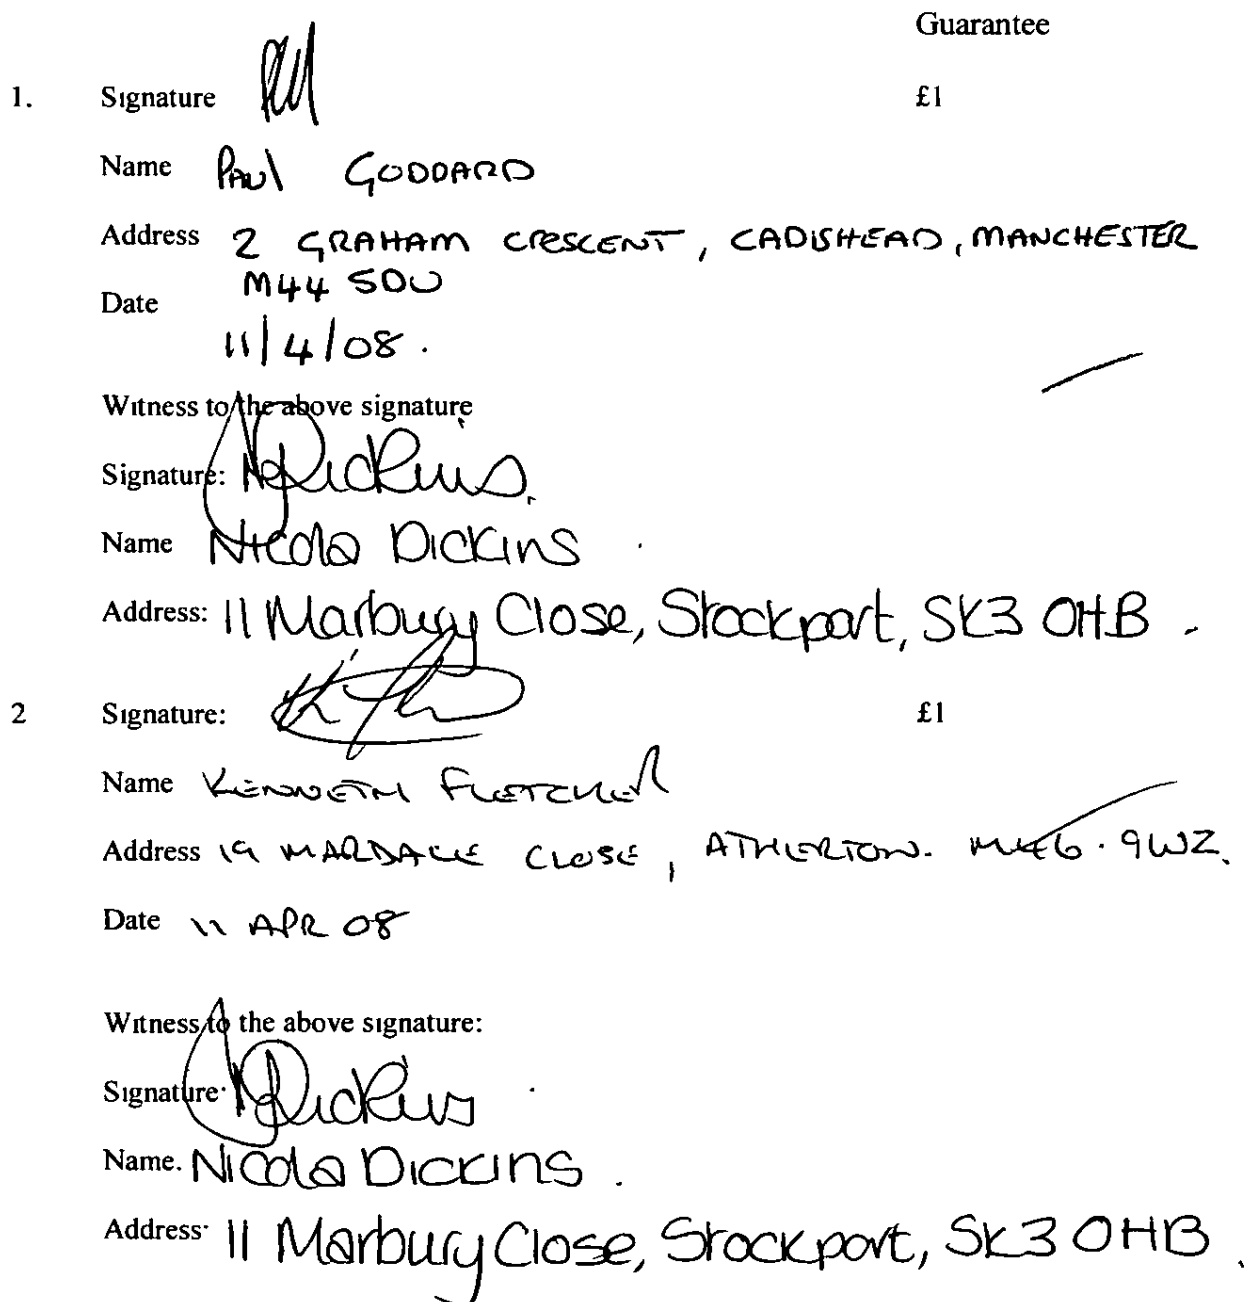 Guarantee
1. Signature £1
Name Paul GODDARD
Address 2 GRAHAM CRESCENT, CADISHEAD, MANCHESTER
M44 5DU
Date
11/4/08.
Witness to the above signature
Signature: N Dickins.
Name Nicola Dickins
Address: 11 Marbury Close, Stockport, SK3 0HB.
2 Signature: £1
Name KENNETH FLETCHER
Address 19 MARDALE CLOSE, ATHERTON. M46 9WZ.
Date 11 APR 08
Witness to the above signature:
Signature: N Dickins
Name. Nicola Dickins.
Address: 11 Marbury Close, Stockport, SK3 0HB.